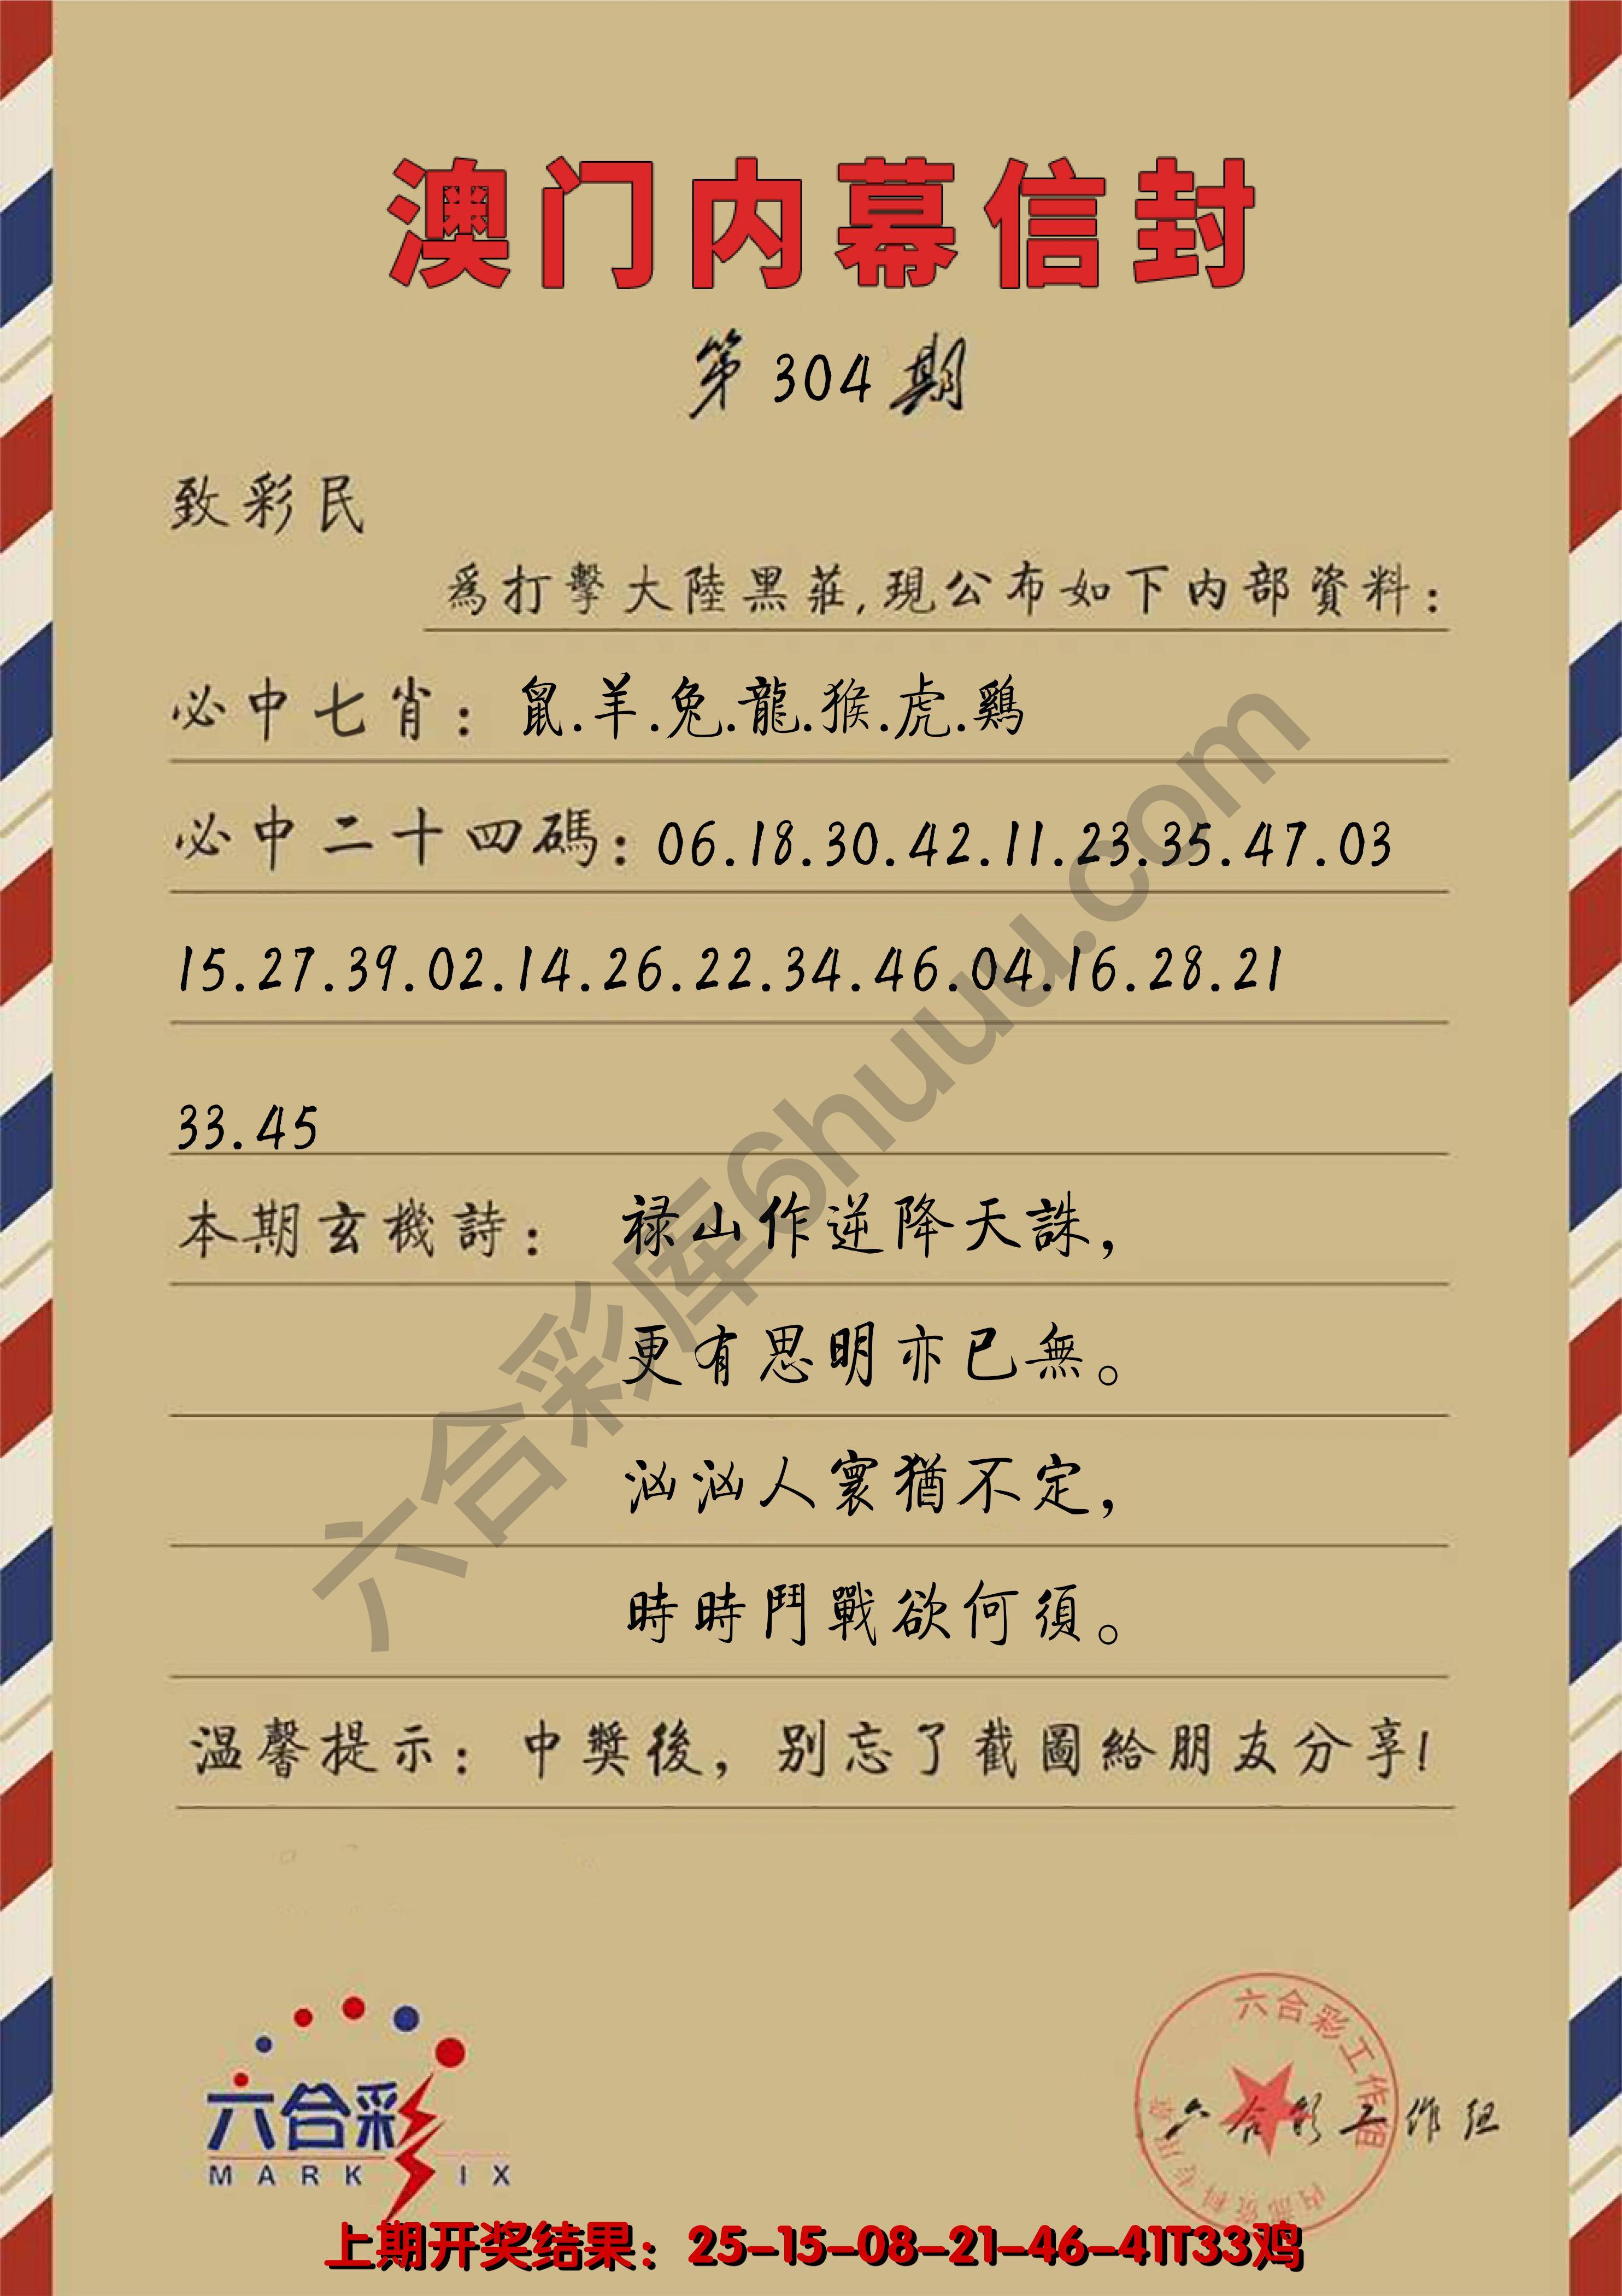 澳门内幕信封
第304期
致彩民
爲打擊大陸黑莊,現公布如下内部資料:
必中七肖: 鼠.羊.兔.龍.猴.虎.鷄
必中二十四碼: 06.18.30.42.11.23.35.47.03
15.27.39.02.14.26.22.34.46.04.16.28.21
33.45
本期玄機詩: 禄山作逆降天誅,
更有思明亦已無。
汹汹人寰猶不定,
時時鬥戰欲何須。
温馨提示: 中獎後, 别忘了截圖給朋友分享!
六合彩库6huuu.com
六合彩
MARK IX
六合彩工作组
六合彩工作组
上期开奖结果: 25-15-08-21-46-41T33鸡